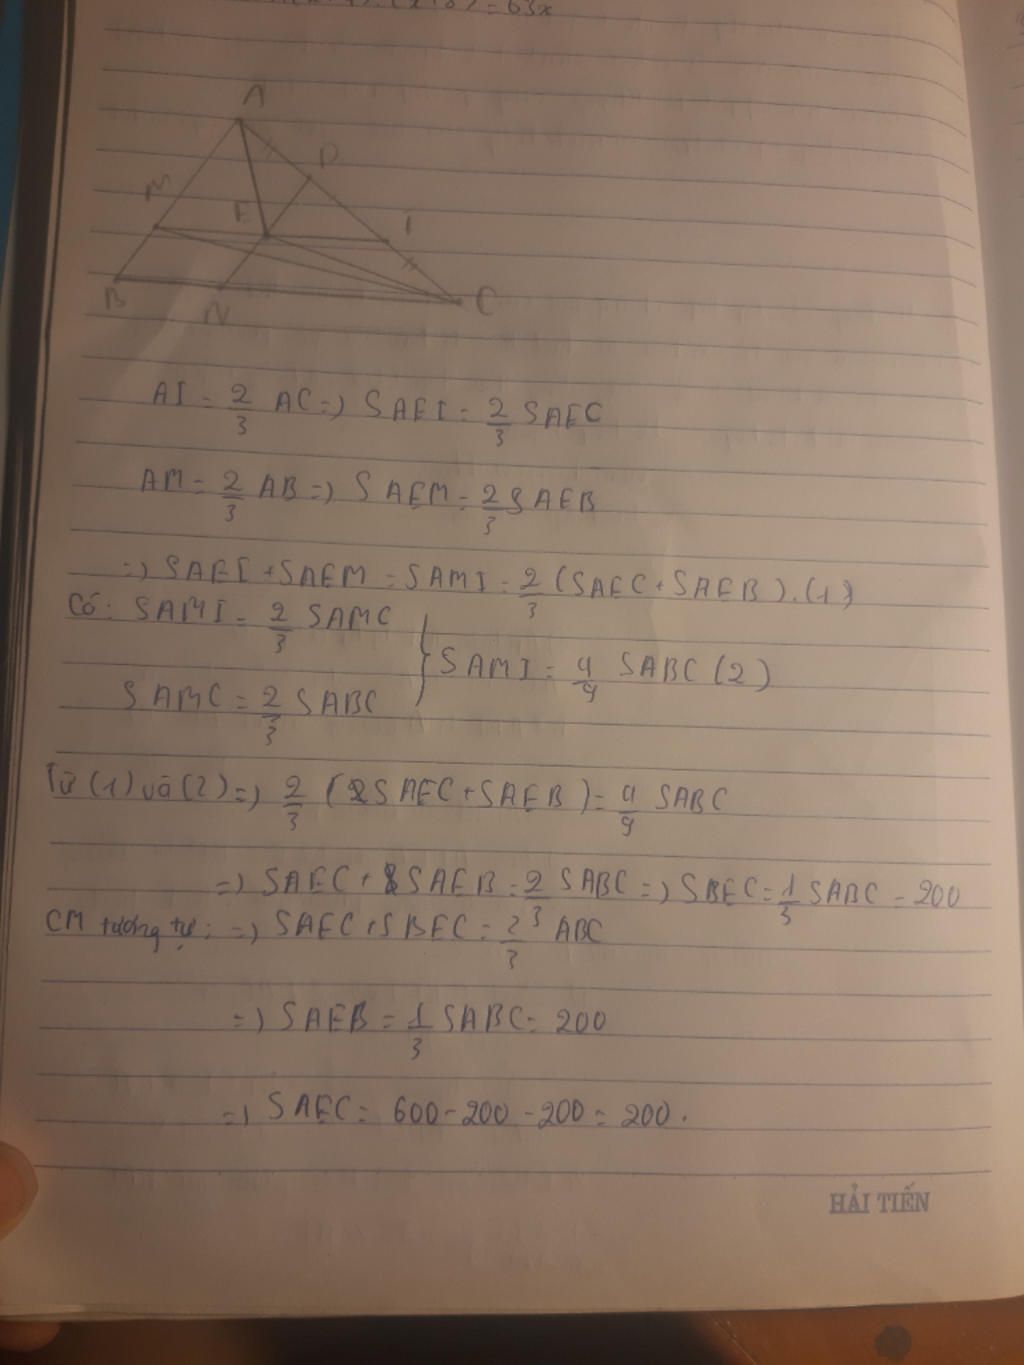 = 63x
A
D
M
E
I
B
N
C
AI = 2/3 AC => SAEI = 2/3 SAEC
AM = 2/3 AB => SAEM = 2/3 SAEB
=> SAEI + SAEM = SAMI = 2/3 (SAEC + SAEB). (1)
Có: SAMI = 2/3 SAMC
SAMI = 4/9 SABC (2)
SAMC = 2/3 SABC
Từ (1) và (2) => 2/3 (SAEC + SAEB) = 4/9 SABC
=> SAEC + SAEB = 2/3 SABC => SBEC = 1/3 SABC = 200
CM tương tự: => SAEC + SBEC = 2/3 ABC
=> SAEB = 1/3 SABC = 200
=> SAEC = 600 - 200 - 200 = 200.
HẢI TIẾN